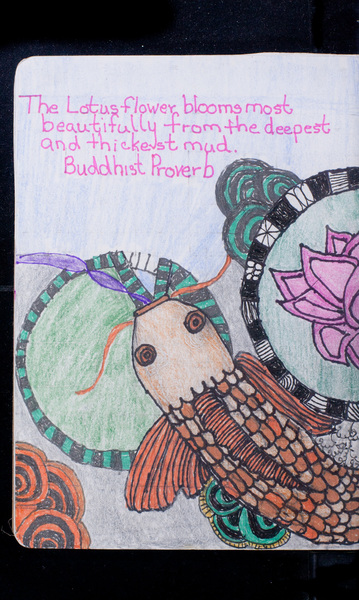 The Lotus flower blooms most
beautifully from the deepest
and thickest mud.
Buddhist Proverb